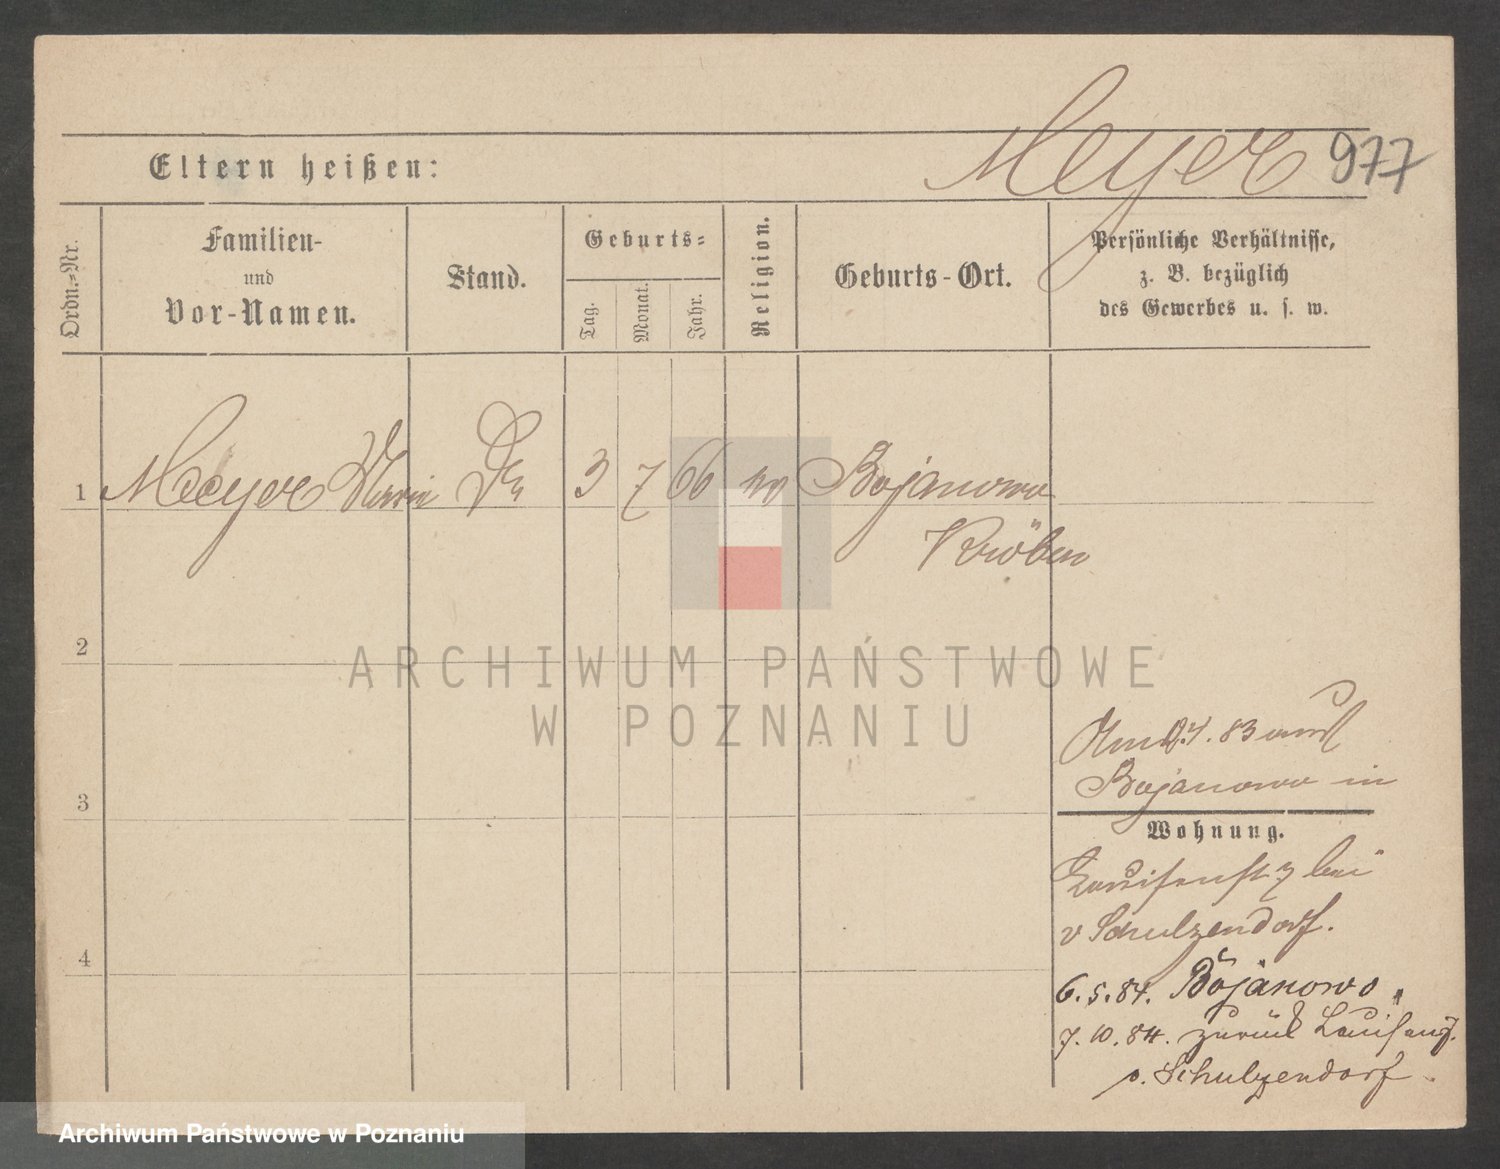 Meyer 977
Eltern heißen:
Ordn.-Nr.
Familien-
und
Vor-Namen.
Stand.
Geburts-
Tag.
Monat.
Jahr.
Religion.
Geburts-Ort.
Persönliche Verhältnisse,
z. B. bezüglich
des Gewerbes u. s. w.
1 Meyer Marie 3 7 66 Bojanowo
Kröben
2
3
4
83 aus
Bojanowo in
Wohnung.
Louisenst 7 bei
v Schulzendorf.
6.5.84. Bojanowo.
7.10.84. zurück Louisenst.
v. Schulzendorf.
ARCHIWUM PAŃSTWOWE
W POZNANIU
Archiwum Państwowe w Poznaniu